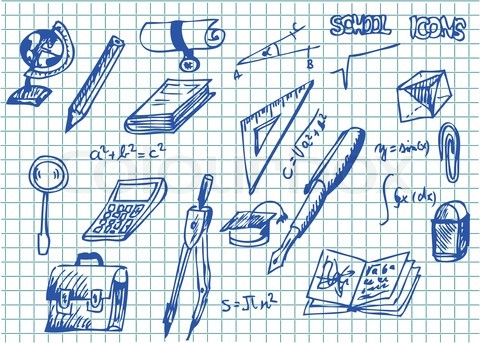 SCHOOL ICONS
A
α
C
B
a²+b²=c²
c=√a²+b²
y=sin(x)
∫Gx(dx)
S=πr²